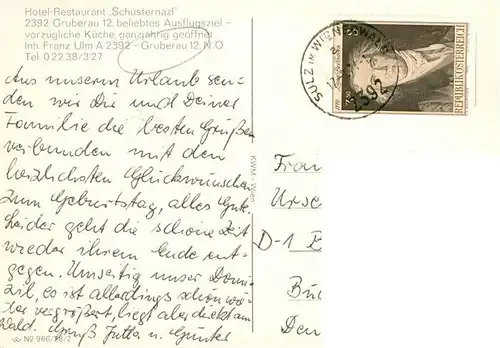 Hotel-Restaurant „Schusternazl"
2392 Gruberau 12, beliebtes Ausflugsziel –
vorzügliche Küche, ganzjährig geöffnet
Inh. Franz Ulm A 2392 - Gruberau 12, N.Ö
Tel. 0 22 38/3 27
Aus unserem Urlaub sen-
den wir Dir und Deiner
Familie die besten Grüße
verbunden mit den
herzlichsten Glückwünschen
zum Geburtstag, alles Gute.
Leider geht die schöne Zeit
wieder ihrem Ende ent-
gegen. Umseitig unser Domi-
zil, es ist allerdings schon wei-
ter vergrößert, liegt aber direkt am
Wald. Gruß Jutta u. Günter
N9 966/78/2
KWM - Wien
SULZ IM WIENERWALD
2392
REPUBLIK ÖSTERREICH
Frau
Urse
D-1
Den